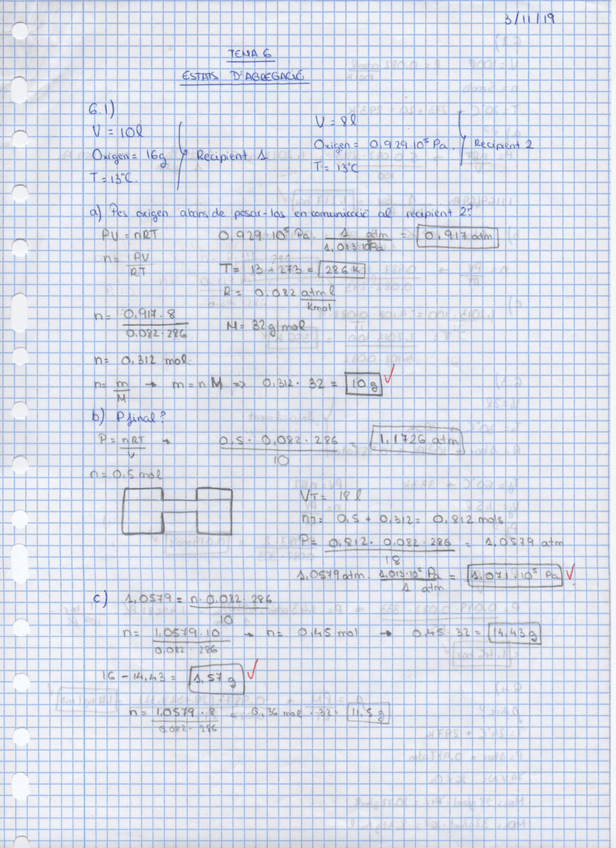 3/11/19
TEMA 6
ESTATS D'AGREGACIÓ
6.1)
V = 10l
Oxigen = 16g
T = 13ºC.
Recipient 1
V = 8l
Oxigen = 0,929·10⁵ Pa.
T = 13ºC
Recipient 2
a) Pes oxigen abans de posar-los en comunicació al recipient 2?
PV = nRT
n = PV / RT
0,929·10⁵ Pa · 1 atm / 1,013·10⁵Pa = 0,917 atm
T = 13 + 273 = 286 K
R = 0,082 atm l / K mol
n = 0,917·8 / 0,082·286
M = 32 g/mol
n = 0,312 mol.
n = m / M → m = n M => 0,312 · 32 = 10 g
b) P final?
P = nRT / V → 0,5 · 0,082 · 286 / 10 = 1,1726 atm
n = 0,5 mol
VT = 18 l
nT = 0,5 + 0,312 = 0,812 mols
P = 0,812 · 0,082 · 286 / 18 = 1,0579 atm
1,0579 atm · 1,013·10⁵ Pa / 1 atm = 1,071·10⁵ Pa
c) 1,0579 = n · 0,082 · 286 / 10
n = 1,0579·10 / 0,082·286 → n = 0,45 mol → 0,45·32 = 14,43 g
16 - 14,43 = 1,57 g
n = 1,0579·8 / 0,082·286 = 0,36 mol · 32 = 11,5 g